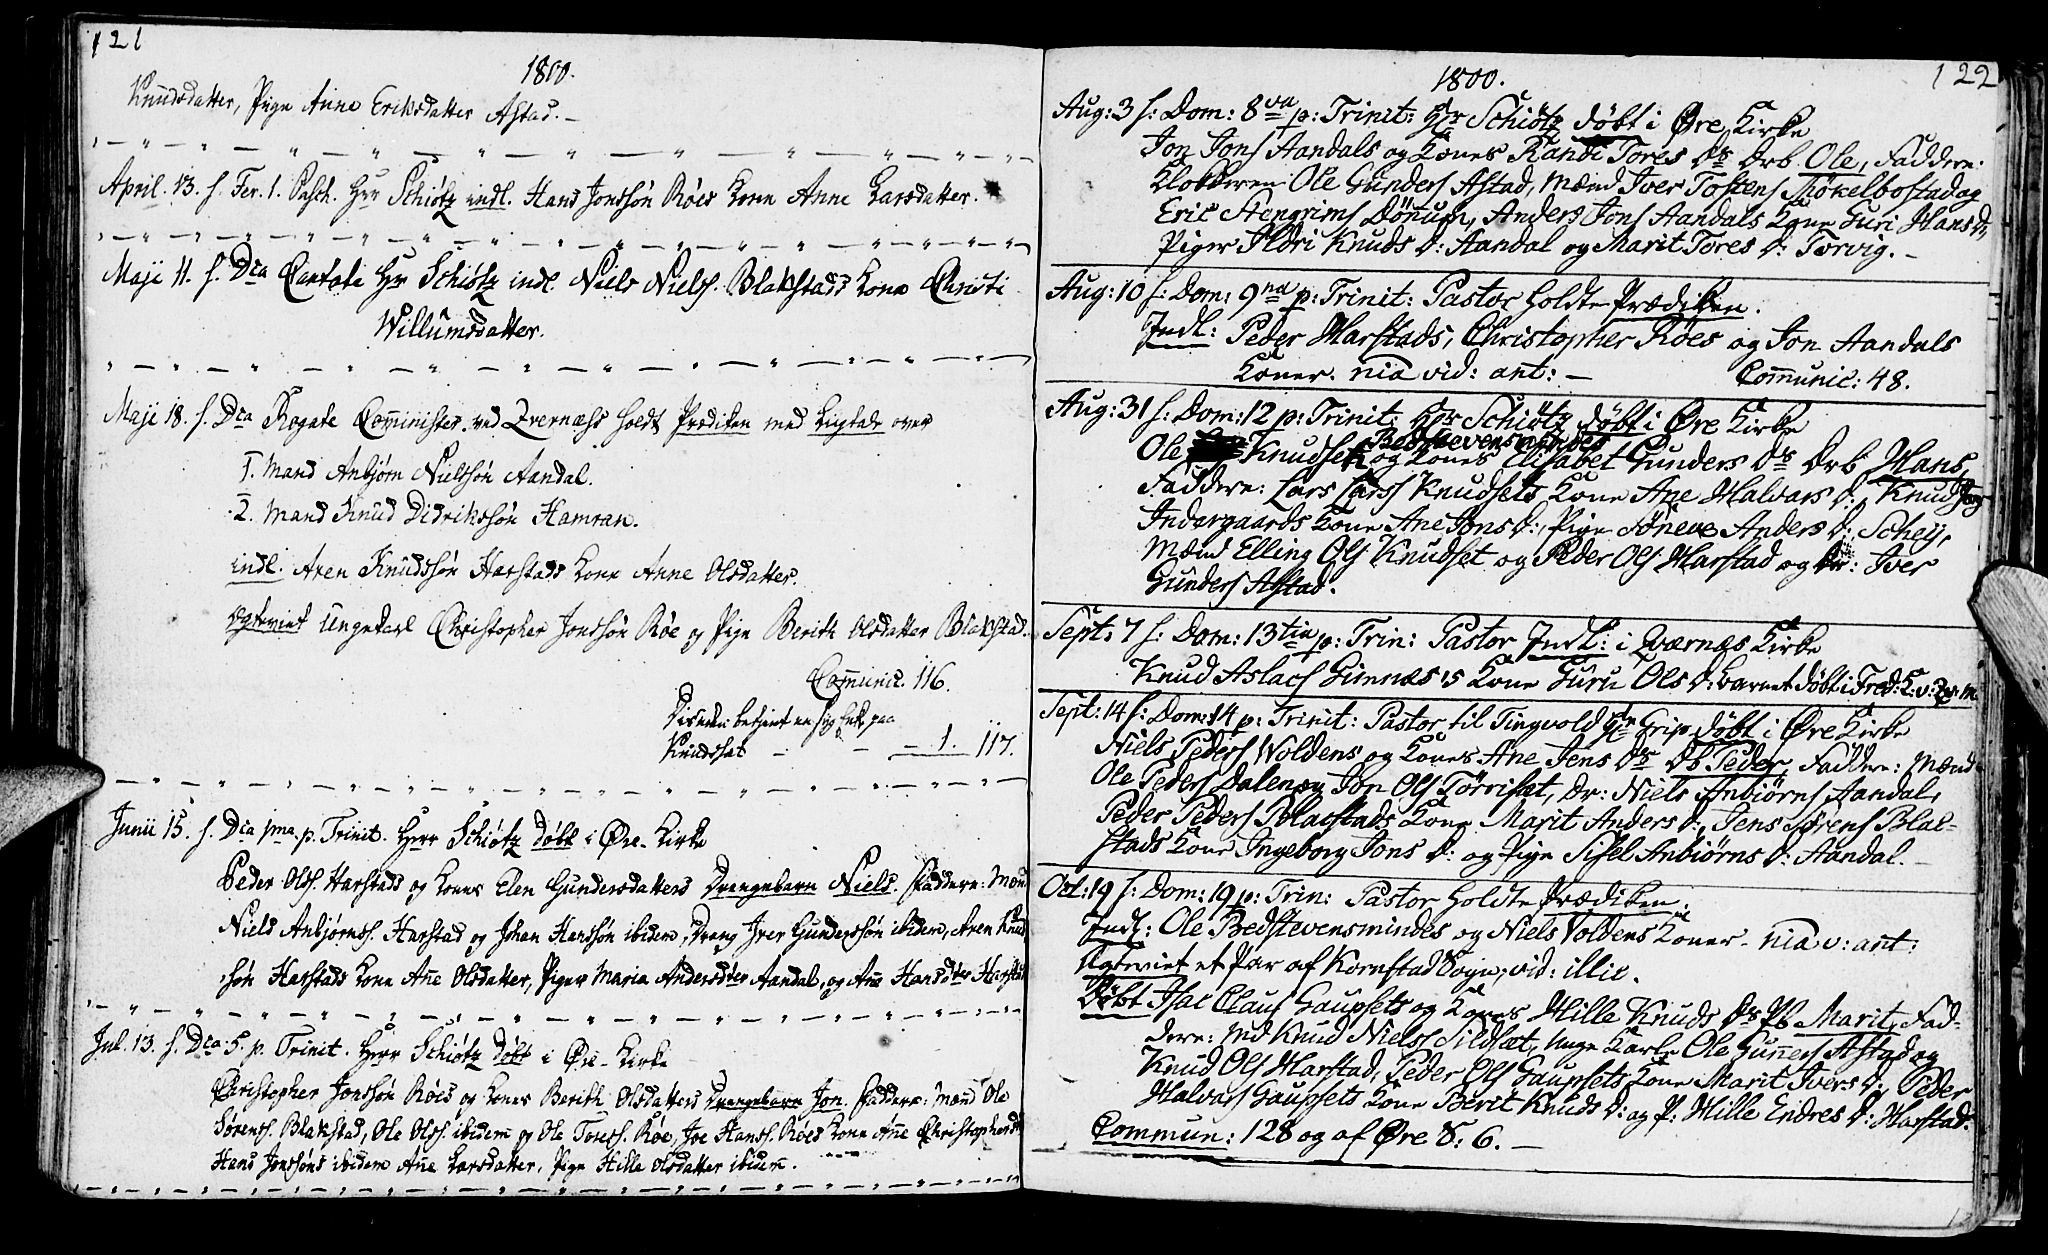 121
1800.
Knudsdatter, Pige Anne Eriksdatter Astad. –
April. 13. f. Fer. 1. Pasch. Hrr Schiötz indl. Hans Jonssön Röes Kone Anne Larsdatter.
Maji 11. f. Dca Cantate Hr Schiötz indl. Niels Nielss. Blakstads Kone Christi
Willumsdatter.
Maji 18. f. Dca Rogate Comminister ved Qvernæss holdt Prædiken med Ligtale over
1. Mand Anbjørn Nielssön Aandal.
2. Mand Knud Didrikssön Hamran.
indl. Aren Knudssön Harstads Kone Anne Olsdatter.
Egteviet Ungekarl Christopher Jonssön Röe og Pige Berith Olsdatter Blakstad.
Communic. 116.
Desuden betjent en syg paa
Knudsset – – – 1. 117.
Junii 15. f. Dca 1ma p. Trinit. Herr Schiötz döbt i Øre-Kirke
Peder Olss. Harstads og Kones Elen Gundersdatters Drengebarn Niels. Faddere: Mænd
Niels Anbjörnss. Harstad og Johan Hanssön ibidem, Dreng Iver Gunderssön ibidem, Aren Knud
sön Harstads Kone Anne Olsdatter, Piger Maria Andersdter Aandal, og Anne Hansdter Harstad
Jul. 13. f. Dca 5. p. Trinit. Herr Schiötz döbt i Øre-Kirke
Christopher Jonssön Röes og Kones Berith Olsdatters Drengebarn Jon. Faddere: Mænd Ole
Sörenss. Blakstad, Ole Olss. ibidem og Ole Toress. Röe, Hanss. Röes Kone Anne Christophersd
Hans Jonssöns ibidem Anne Larsdatter, Pige Hille Olsdatter ibidem.
122
1800.
Aug: 3 f: Dom: 8va p: Trinit: Hr Schiötz döbt i Øre Kirke
Jon Jons Aandals og Kones Randi Tores Ds Drb. Ole, Faddere:
Klokkeren Ole Gunders Astad, Mænd Iver Tostens Mökelbostad og
Eric Stengrims Dönum, Anders Jons Aandals Kone Guri Hans D,
Piger Ildri Knuds D: Aandal og Marit Tores D: Torvig. –
Aug: 10 f: Dom: 9na p: Trinit: Pastor holdte Prædiken.
Indl: Peder Harstads, Christopher Röes og Jon Aandals
Koner. nia vid: ant: – Communic: 48.
Aug: 31 f: Dom: 12 p: Trinit: Hr Schiötz döbt i Øre Kirke
Bedstevensmindes
Ole Knudset og Kones Elisabet Gunders Ds Drb Hans,
Faddere: Lars Larss Knudsets Kone Ane Halvars D:, Knud
Indergaards Kone Ane Jons D:, Pige Söneve Anders D: Schey,
Mænd Elling Ols Knudset og Peder Ols Harstad og Dr: Iver
Gunders Astad.
Sept: 7 f: Dom: 13tia p: Trin: Pastor Indl: i Qværnæs Kirke
Knud Aslacs Gimnæs's Kone Guru Ols D: barnet döbt i Fred: K: v: m
Sept: 14 f: Dom: 14 p: Trinit: Pastor til Tingvold Hr Grip döbt i Øre Kirke
Niels Peders Woldens og Kones Ane Jens Ds Db Peder, Faddere: Mænd
Ole Peders Dalen og Jon Ols Törrisæt, Dr: Niels Anbiörns Aandal,
Peder Peders Blacstads Kone Marit Anders D:, Jens Sörens Blac-
stads Kone Ingeborg Jons D: og Pige Sisel Anbiörns D: Aandal. –
Oct: 19 f: Dom: 19 p: Trin: Pastor holdte Prædiken.
Indl: Ole Bedstevensmindes og Niels Voldens Koner. nia v: ant:
Egteviet et Par af Kornstad Sogn; vid: illic.
Döbt Isac Claus Gaupsets og Kones Hille Knuds Ds Pb Marit, Fad-
dere: Md Knud Niels Sildset, unge Karle Ole Gunners Astad og
Knud Ols Harstad, Peder Ols Gaupsets Kone Marit Ivers D:, Peder
Halvars Gaupsets Kone Berit Knuds D: og P: Hille Endres D: Harstad.
Commun: 128 og af Øre S: 6. –